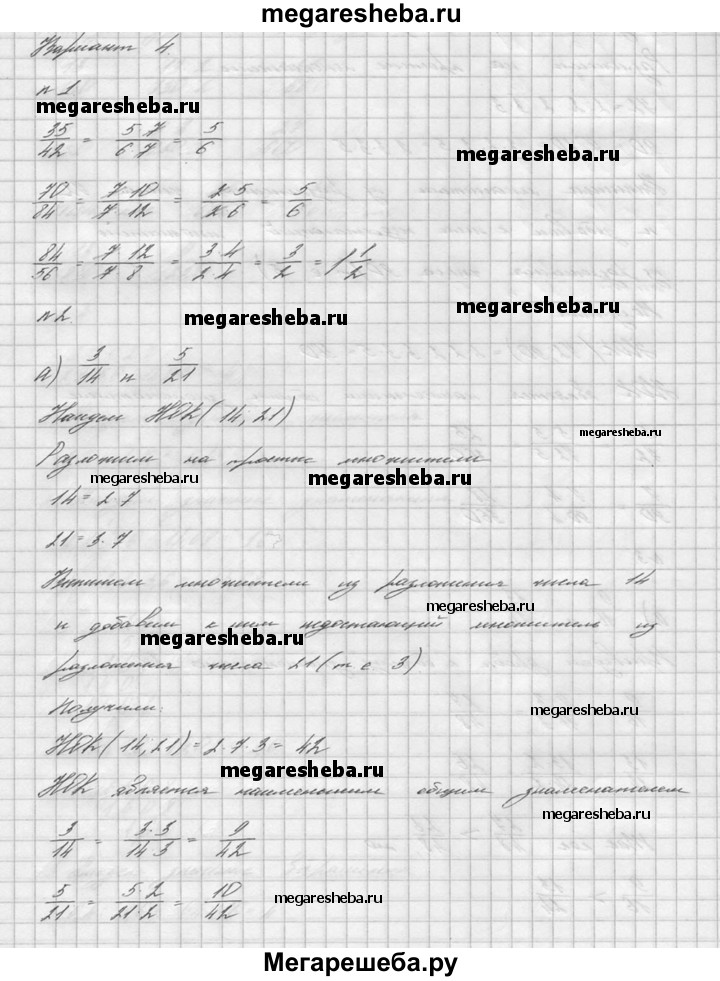 megaresheba.ru
Вариант 4.
n 1
megaresheba.ru
35/42 = 5·7/6·7 = 5/6
megaresheba.ru
70/84 = 7·10/7·12 = 2·5/2·6 = 5/6
84/56 = 7·12/7·8 = 3·4/2·4 = 3/2 = 1 1/2
megaresheba.ru
n 2.
megaresheba.ru
а) 3/14 и 5/21
Найдем НОК(14, 21)
megaresheba.ru
Разложим на простые множители
megaresheba.ru
megaresheba.ru
14 = 2·7
21 = 3·7
Выпишем множители из разложения числа 14
megaresheba.ru
и добавим к ним недостающий множитель из
megaresheba.ru
разложения числа 21 (т.е. 3)
Получили:
megaresheba.ru
НОК(14, 21) = 2·7·3 = 42
megaresheba.ru
НОК является наименьшим общим знаменателем
megaresheba.ru
3/14 = 3·3/14·3 = 9/42
5/21 = 5·2/21·2 = 10/42
megaresheba.ru
Мегарешеба.ру